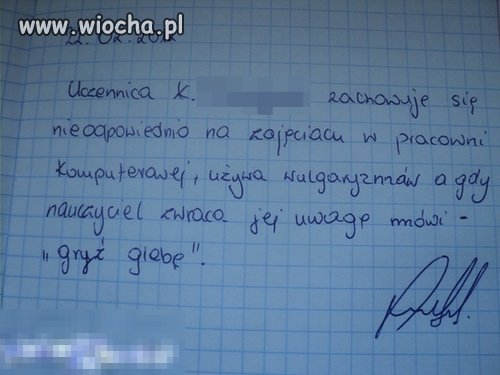 www.wiocha.pl
22.02.2012
Uczennica K. zachowuje się
nieodpowiednio na zajęciach w pracowni
komputerowej, używa wulgaryzmów a gdy
nauczyciel zwraca jej uwagę mówi -
"gryź glebę".